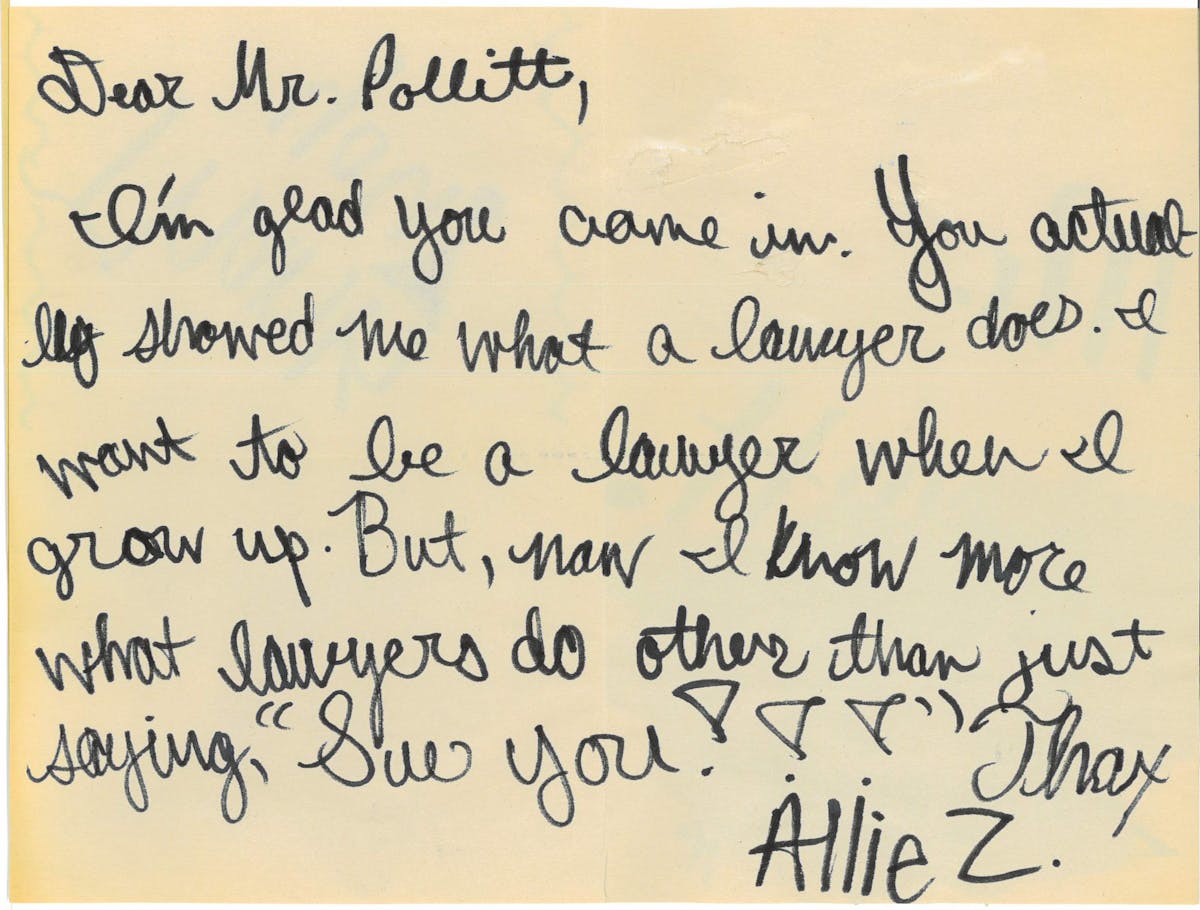 Dear Mr. Pollitt,
I'm glad you came in. You actual-
ly showed me what a lawyer does. I
want to be a lawyer when I
grow up. But, now I know more
what lawyers do other than just
saying, "Sue you!!!" Thax
Allie Z.